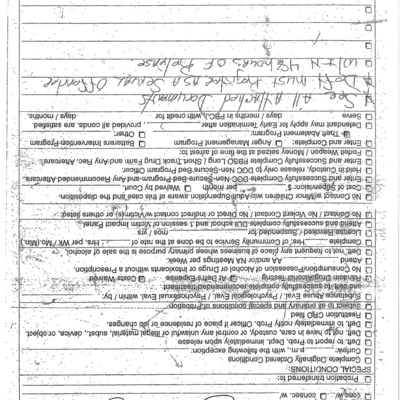 conc w/ consec. w/
Probation transferred to:
SPECIAL CONDITIONS:
Complete Originally Ordered Conditions
Curfew: p.m., with the following exception:
Deft. to report to Prob. Dept. immediately upon release
Deft. not to have in care, custody or control any unlawful or illegal material, subst., device, or object.
Deft. to immediately notify Prob. Officer if place of residence or job changes.
Restitution CRO filed
Subject to all ordinary and special conditions of Probation
Substance Abuse Eval. / Psychological Eval. / Psychosexual Eval. within / by:
and deft. to successfully complete recommended treatment
Random Drug/Alcohol Testing If Appropriate Costs Waived
No Consumption/Possession of Alcohol or Drugs or Intoxicants without a Prescription.
Attend AA and/or NA Meetings per Week.
Deft. not to frequent any place or business whose primary purpose is the sale of alcohol.
Complete Hrs. of Community Service to be done at the rate of Hrs. per WK / Mo. (Min.)
License Revoked / Suspended for mos / yrs
Attend and successfully complete DUI school and 1 session of Victim Impact Panel.
No Contact / No Violent Contact / No Direct or Indirect contact w/victim(s) or others listed:
No Contact w/Minor Children w/o Adult Supervision aware of this case and the disposition.
Cost of Supervision $ per month Waived by Court
Enter and Successfully Complete DOC Non-Secure Bed Program and Any Recommended Aftercare.
Hold in Custody, release only to DOC Non-Secure Bed Program Officer.
Enter and Successfully Complete PBSO Long / Short Track Drug Farm and Any Rec. Aftercare.
Forfeit Weapon / Money seized at the time of arrest to:
Enter and Complete: Anger Management Program Batterers Intervention Program
Theft Abatement Program. Other:
Defendant may apply for Early Termination after , provided all conds. are satisfied.
Serve days / months in PBCJ, with credit for days / months.
See All Attached Documents
Deft must Register as a Sexual Offender
W/I N 48 hours of Release